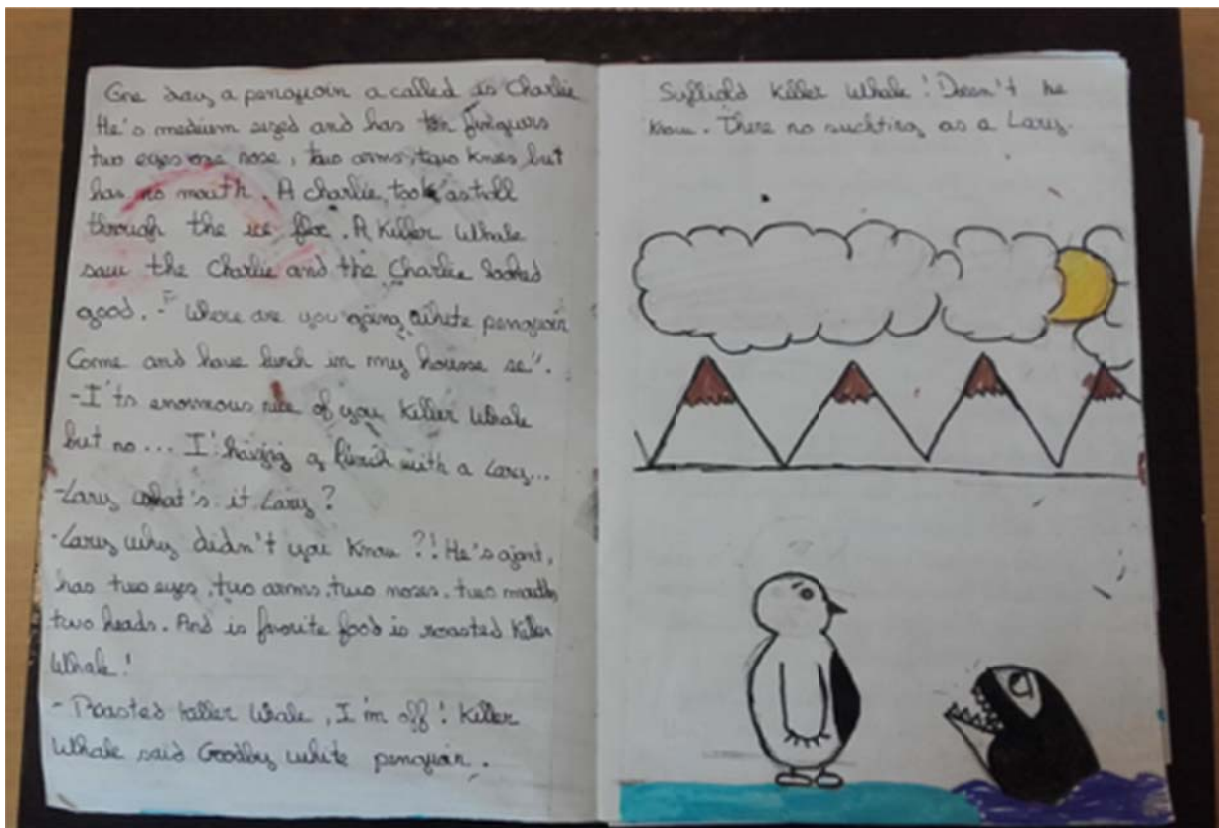 One day a penguoin a called as Charlie
He's medium sized and has ten finguers
two eyes one nose, two arms, two knes but
has no mouth. A charlie, took astroll
through the ice floe. A Killer Whale
saw the Charlie and the Charlie looked
good. - "Where are you going white penguoin
Come and have lunch in my housse se".
-I'ts enormous nice of you Killer Whale
but no... I' having a lunch with a Lary...
-Lary what's it Lary?
-Lary why didn't you Know?! He's ajant,
has two eyes, two arms, two noses, two mouths
two heads. And is favorite food is roasted Killer
Whale!
- Roasted Killer Whale, I'm off! Killer
Whale said Goodby white penguoin.
Killer Whale! Doesn't he
Know. There no suchting as a Lary.